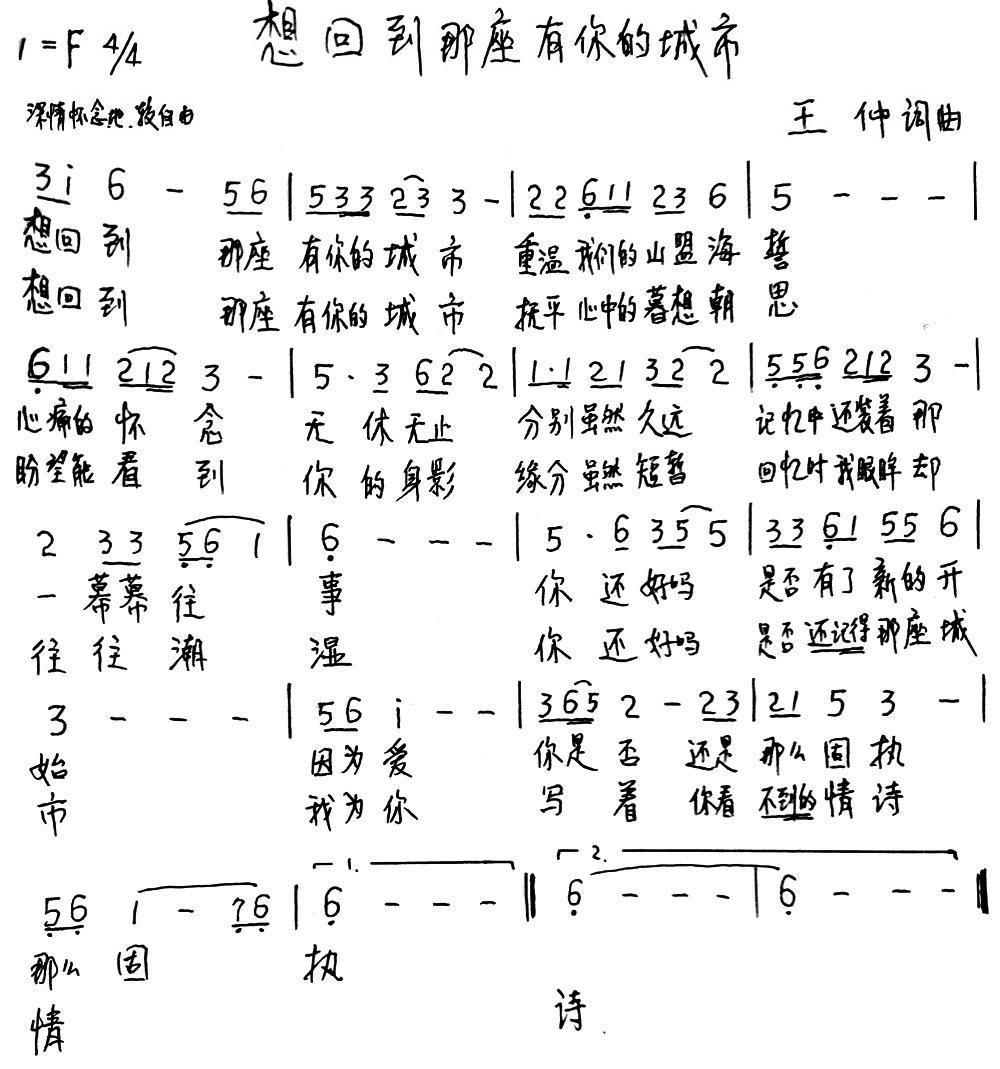 想回到那座有你的城市
1=F 4/4
深情怀念地、较自由
王 仲 词曲
3 i 6 - 5 6 | 5 3 3 2 3 3 - | 2 2 6 1 1 2 3 6 | 5 - - - |
想回 到 那座 有你的 城 市 重温 我们的 山盟 海 誓
想回 到 那座 有你的 城 市 抚平 心中的 暮想 朝 思
6 1 1 2 1 2 3 - | 5 · 3 6 2 2 | 1 · 1 2 1 3 2 2 | 5 5 6 2 1 2 3 - |
心痛的 怀 念 无 休 无止 分别 虽然 久远 记忆中 还装着 那
盼望能 看 到 你 的 身影 缘分 虽然 短暂 回忆时 我眼眸 却
2 3 3 5 6 1 | 6 - - - | 5 · 6 3 5 5 | 3 3 6 1 5 5 6 |
一 幕幕 往 事 你 还 好吗 是否 有了 新的 开
往 往 潮 湿 你 还 好吗 是否 还记得 那座 城
3 - - - | 5 6 i - - | 3 6 5 2 - 2 3 | 2 1 5 3 - |
始 因为 爱 你是 否 还是 那么 固 执
市 我为 你 写 着 你看 不到的 情 诗
1. 2.
5 6 1 - 7 6 | 6 - - - ‖ 6 - - - | 6 - - - ‖
那么 固 执
情 诗